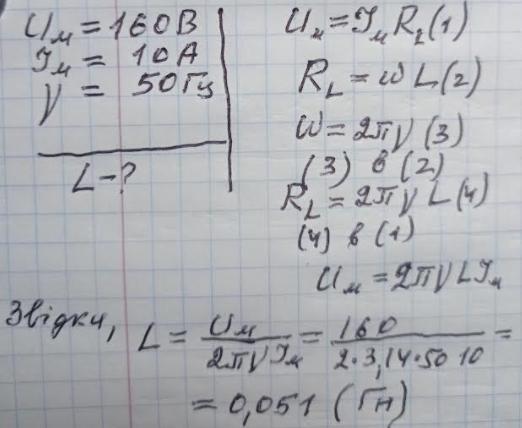 Uм = 160В
Iм = 10А
ν = 50Гц
L-?
Uм = Iм RL (1)
RL = ω L (2)
ω = 2πν (3)
(3) в (2)
RL = 2πν L (4)
(4) в (1)
Uм = 2πν L Iм
Звідки, L = Uм / 2πν Iм = 160 / 2·3,14·50 10 =
= 0,051 (Гн)